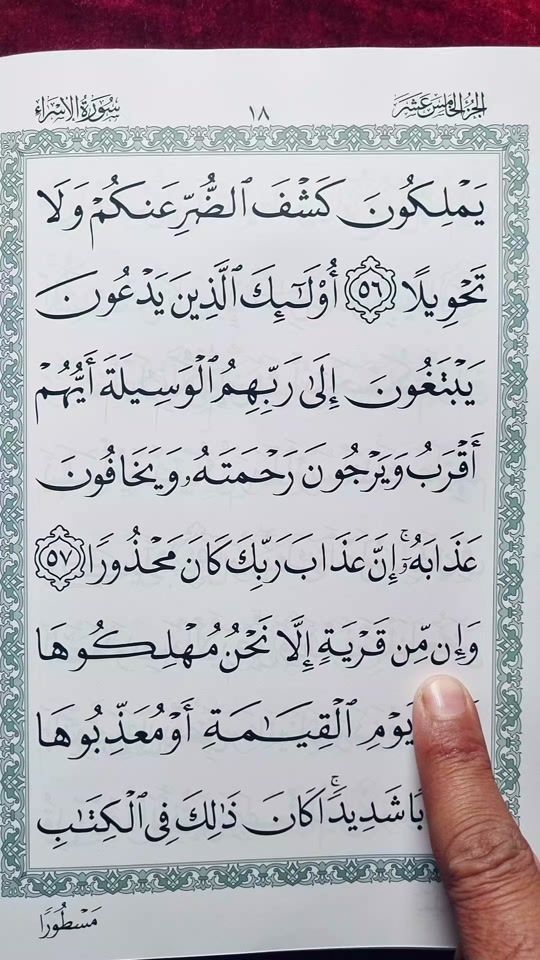 الجزء الخامس عشر ١٨ سورة الإسراء
يَمْلِكُونَ كَشْفَ ٱلضُّرِّ عَنكُمْ وَلَا
تَحْوِيلًا ٥٦ أُوْلَٰٓئِكَ ٱلَّذِينَ يَدْعُونَ
يَبْتَغُونَ إِلَىٰ رَبِّهِمُ ٱلْوَسِيلَةَ أَيُّهُمْ
أَقْرَبُ وَيَرْجُونَ رَحْمَتَهُۥ وَيَخَافُونَ
عَذَابَهُۥٓۚ إِنَّ عَذَابَ رَبِّكَ كَانَ مَحْذُورًا ٥٧
وَإِن مِّن قَرْيَةٍ إِلَّا نَحْنُ مُهْلِكُوهَا
يَوْمِ ٱلْقِيَٰمَةِ أَوْ مُعَذِّبُوهَا
شَدِيدًاۚ كَانَ ذَٰلِكَ فِى ٱلْكِتَٰبِ
مَسْطُورًا